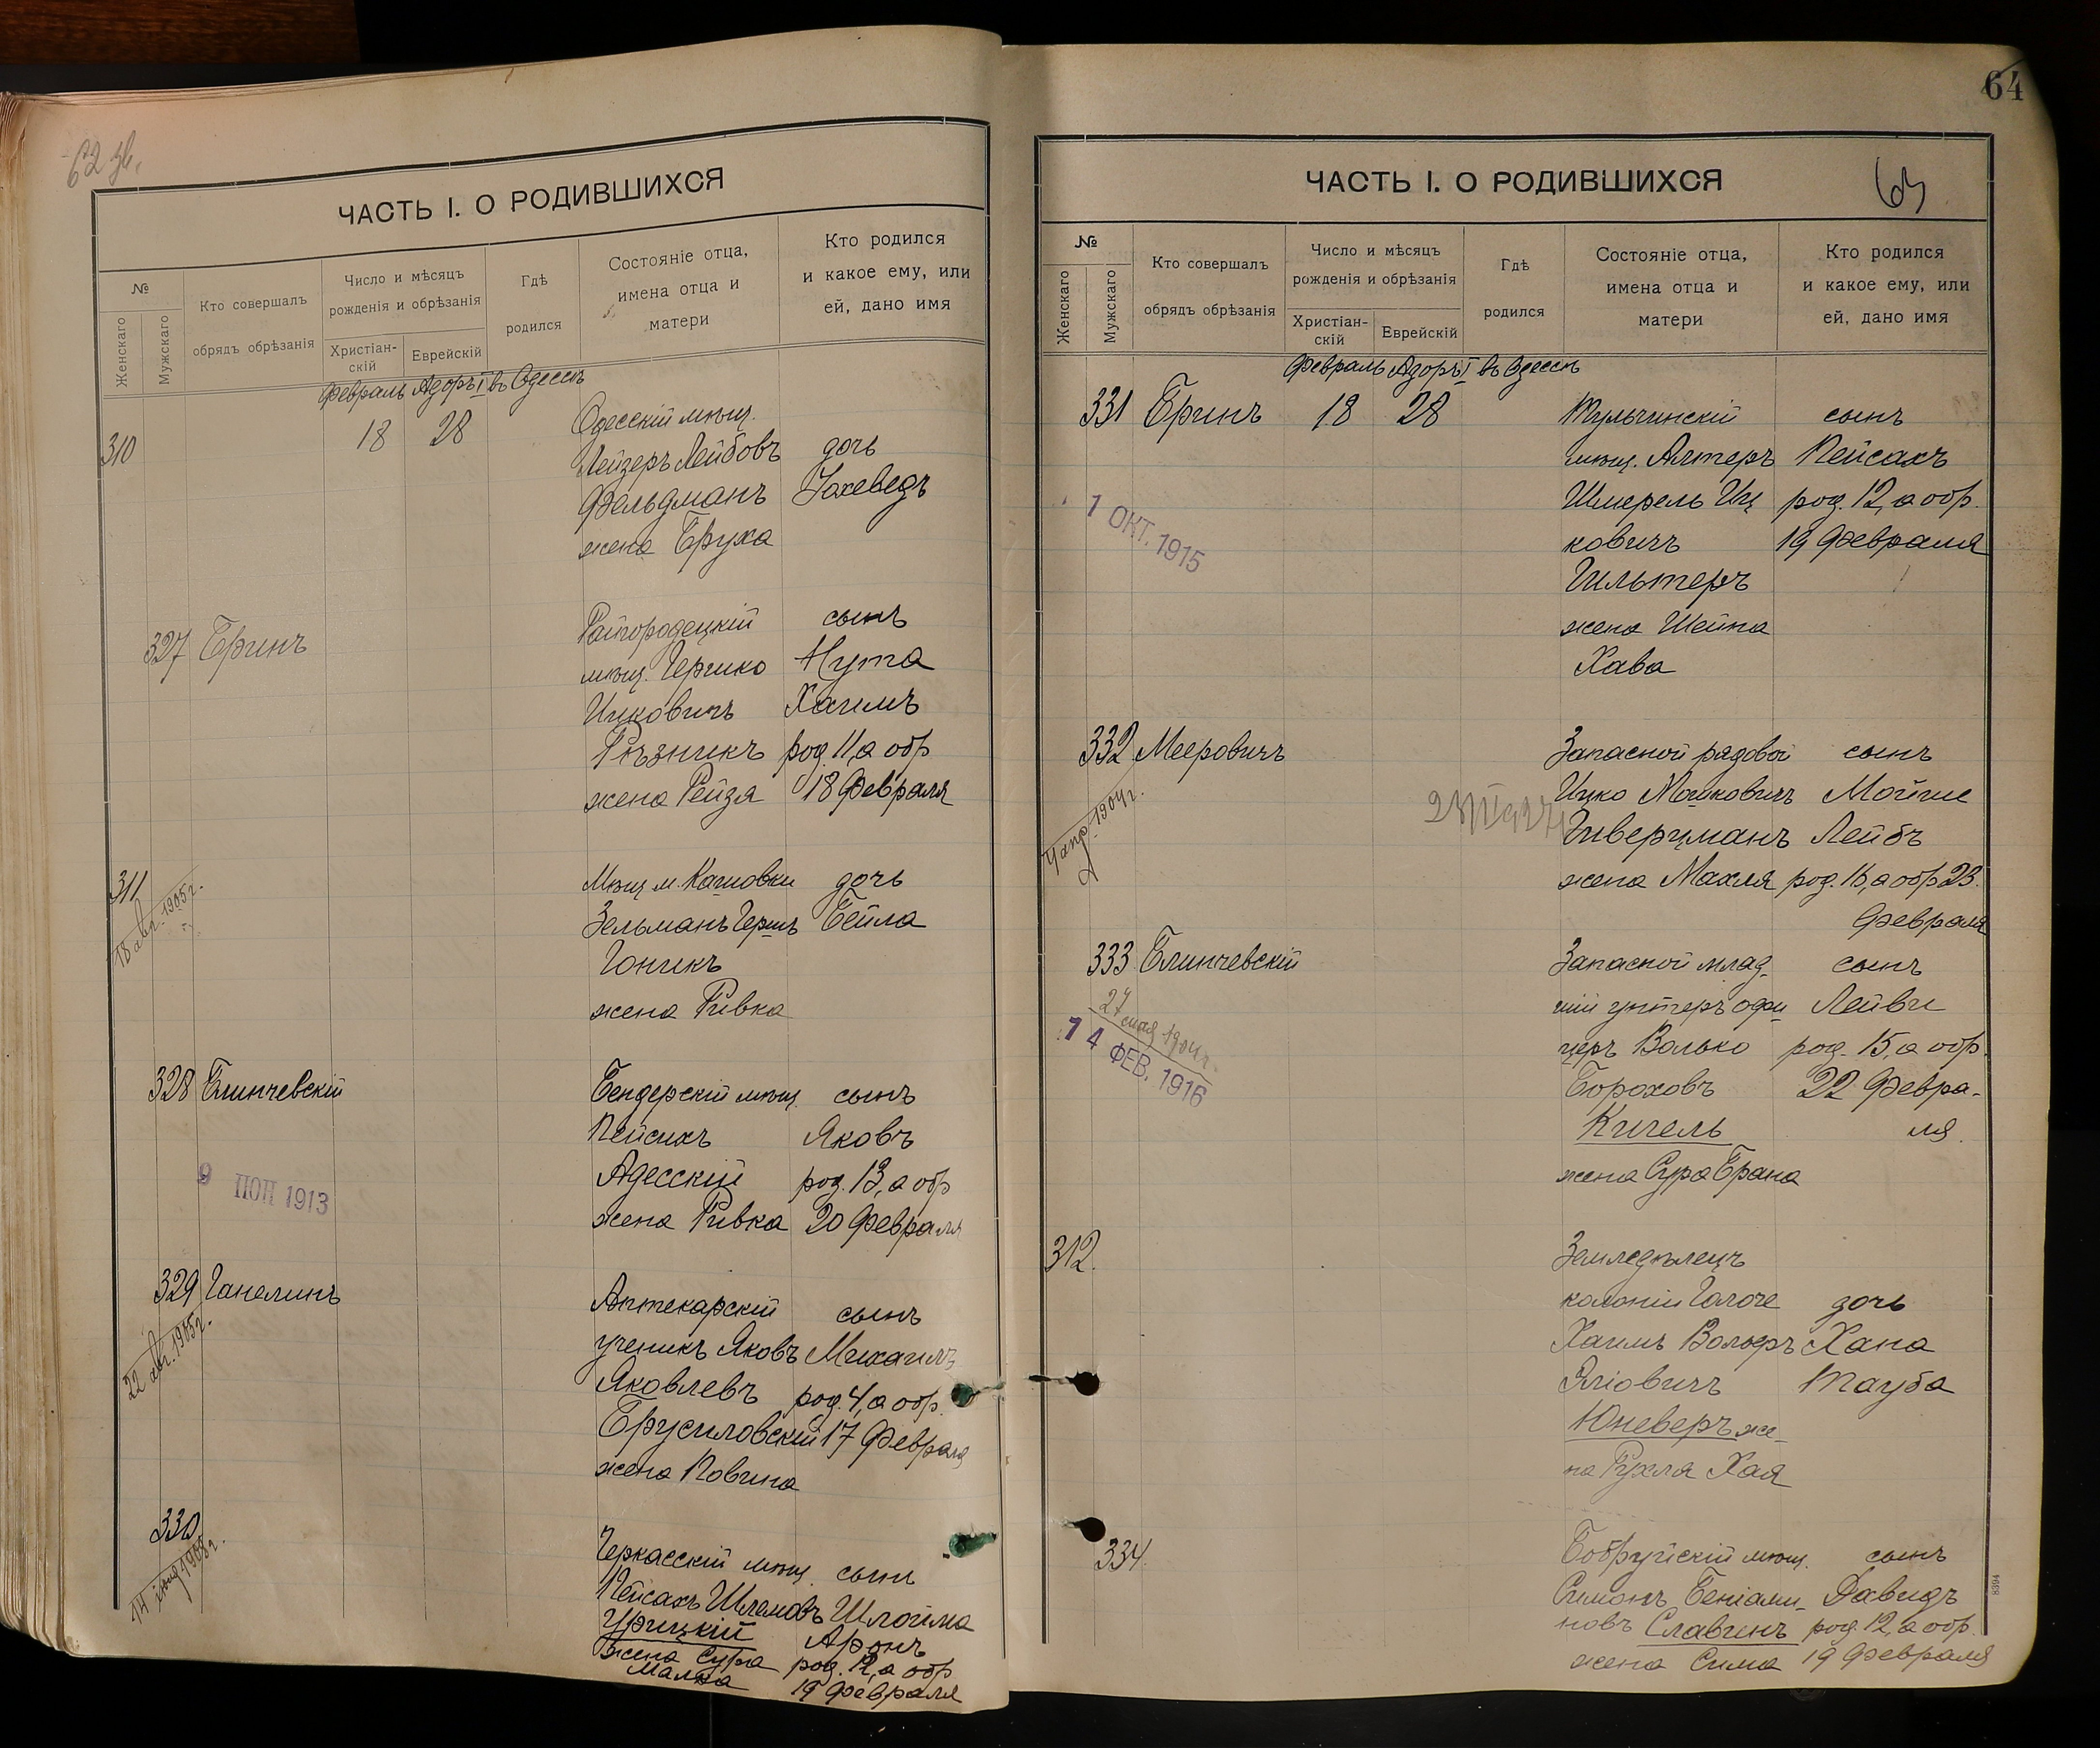 62 зв.
ЧАСТЬ I. О РОДИВШИХСЯ
№
Женскаго
Мужскаго
Кто совершалъ
обрядъ обрѣзанія
Число и мѣсяцъ
рожденія и обрѣзанія
Христіан-
скій
Еврейскій
Гдѣ
родился
Состояніе отца,
имена отца и
матери
Кто родился
и какое ему, или
ей, дано имя
Февраль Адоръ I въ Одессѣ
310 18 28 Одесскій мѣщ.
Лейзеръ Лейбовъ дочь
Фельдманъ Іохеведъ
жена Бруха
327 Бринъ Райгородецкій сынъ
мѣщ. Гершко Нута
Ицковичъ Хаимъ
Рѣзникъ род. 11, а обр
жена Рейзя 18 Февраля
311 Мѣщ м. Катовки дочь
18 авг. 1905 г. Зельманъ Гершъ Бейла
Гоникъ
жена Ривка
328 Блинчевскій Бендерскій мѣщ. сынъ
Пейсихъ Яковъ
Адесскій род. 13, а обр
жена Ривка 20 Февраля
9 1913
329 Ганелинъ Аптекарскій сынъ
22 авг. 1905 г. ученикъ Яковъ Михаилъ
Яковлевъ род. 4, а обр.
Брусиловскій 17 Февраля
жена
330 Черкасскій мѣщ. сынъ
Пейсахъ Шлемовъ Шлойма
Урицкій Аронъ
жена Сура род. 12, а обр
Малка 19 Февраля
64
ЧАСТЬ I. О РОДИВШИХСЯ
63
№
Женскаго
Мужскаго
Кто совершалъ
обрядъ обрѣзанія
Число и мѣсяцъ
рожденія и обрѣзанія
Христіан-
скій
Еврейскій
Гдѣ
родился
Состояніе отца,
имена отца и
матери
Кто родился
и какое ему, или
ей, дано имя
Февраль Адоръ I въ Одессѣ
331 Бринъ 18 28 Тульчинскій сынъ
мѣщ. Алтеръ Пейсахъ
Шмерель Иц род. 12, а обр.
ковичъ 19 Февраля
1 ОКТ. 1915
Гильтеръ
жена Шейна
Хава
332 Мееровичъ Запасной рядовой сынъ
Ицко Мошковичъ Мойше
Гиверцманъ Лейбъ
жена Махля род. 16, а обр 23.
Февраля
333 Блинчевскій Запасной млад- сынъ
шій унтеръ офи Лейви
церъ Волько род. 15, а обр.
Бороховъ 22 Февра-
Кигель ля.
14 ФЕВ. 1916
жена Сура Брана
312. Земледѣлецъ
колоніи дочь
Хаимъ Вольфъ Хана
Эліовичъ Тауба
Юневеръ же-
на Рухля Хая
334. Бобруйскій мѣщ. сынъ
Симонъ Беніами- Давидъ
новъ Славинъ род. 12, а обр.
жена Сима 19 Февраля
8394